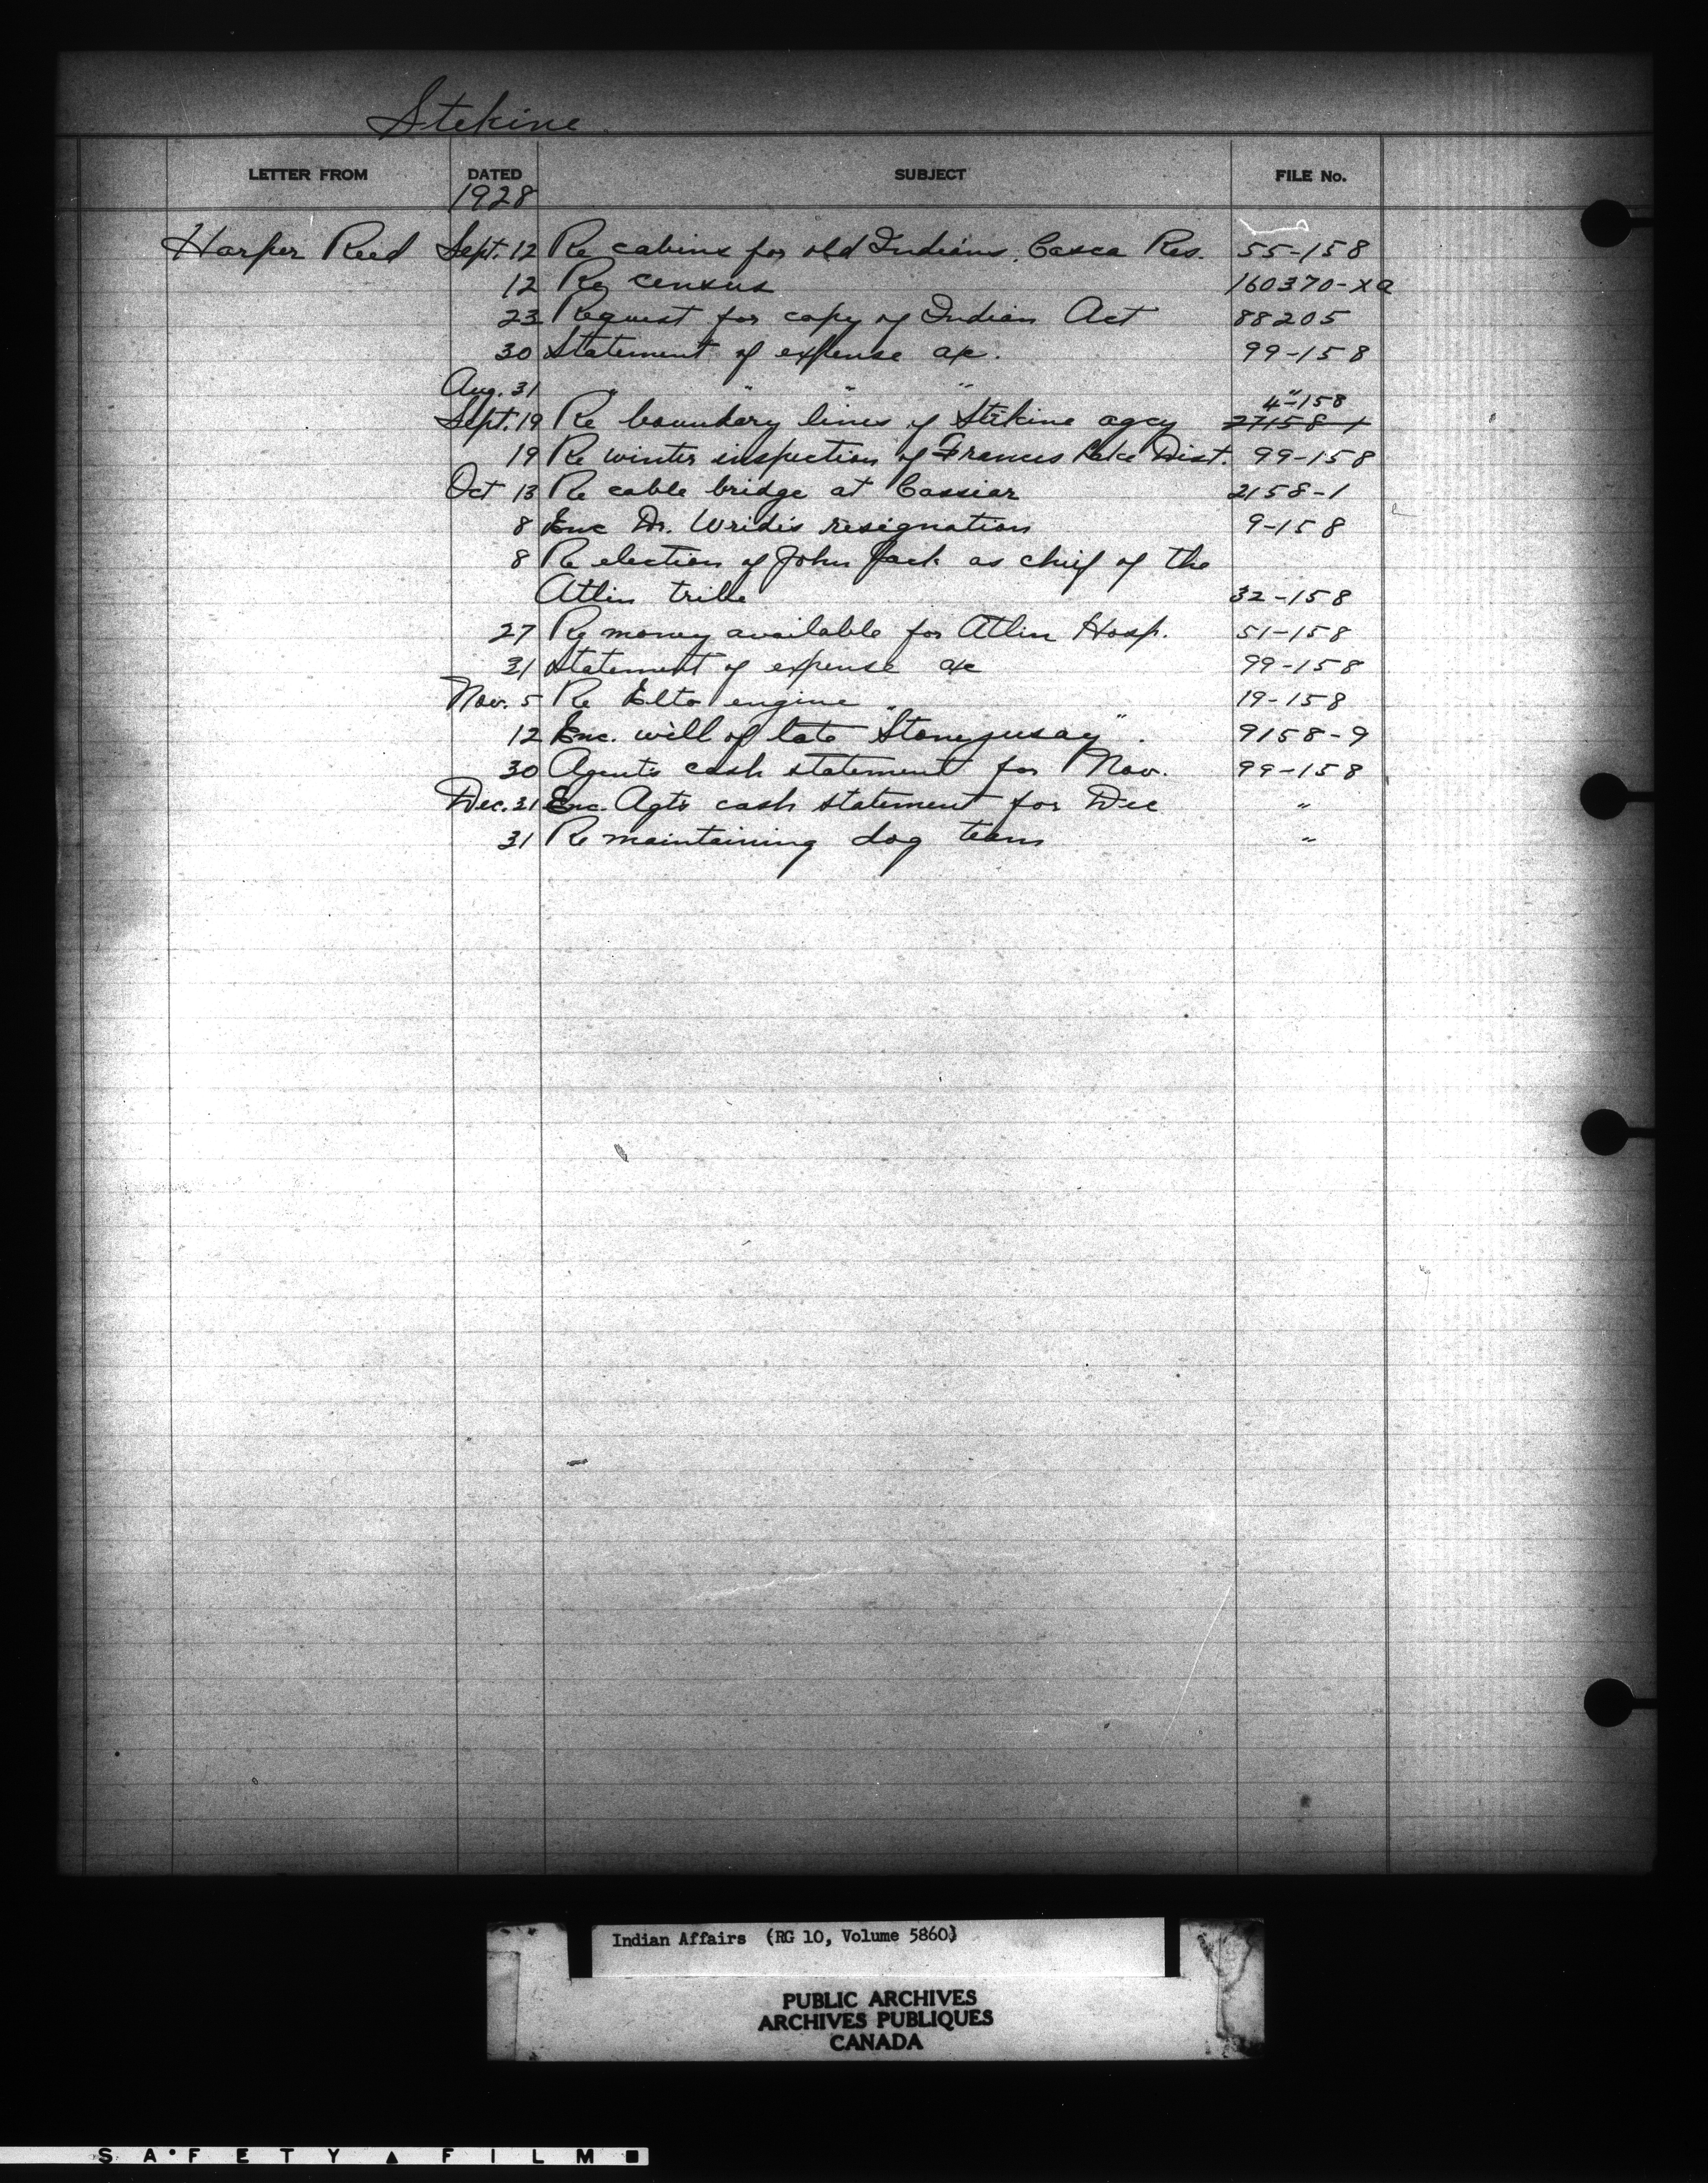 Stekine
LETTER FROM DATED SUBJECT FILE No.
1928
Harper Reed Sept. 12 Re cabins for old Indians. Casca Res. 55-158
12 Re census 160370-xa
23 Request for copy of Indian Act 88205
30 Statement of expense a/c. 99-158
Aug. 31 " " " " "
4-158
Sept. 19 Re boundary lines of Stikine agcy 27158-1
19 Re winter inspection of Frances Lake Dist. 99-158
Oct 13 Re cable bridge at Cassiar 2158-1
8 Enc Dr. resignation 9-158
8 Re election of John Jack as chief of the
Atlin tribe 32-158
27 Re money available for Atlin Hosp. 51-158
31 Statement of expense a/c 99-158
Nov. 5 Re Elto engine 19-158
12 Enc. will of late " " . 9158-9
30 Agents cash statement for Nov. 99-158
Dec. 31 Enc. Agts cash statement for Dec "
31 Re maintaining dog team "
Indian Affairs (RG 10, Volume 5860)
PUBLIC ARCHIVES
ARCHIVES PUBLIQUES
CANADA
SAFETY FILM